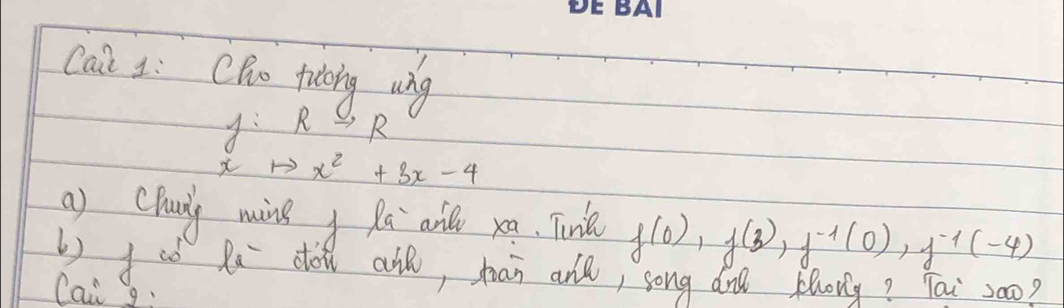 ĐỀ BÀI
Câu 1: Cho tương ứng
f: R → R
x ↦ x² + 3x - 4
a) Chứng minh f là ánh xạ. Tính f(0), f(3), f⁻¹(0), f⁻¹(-4)
b) f có là đơn ánh, toàn ánh, song ánh không? Tại sao?
Câu 2: